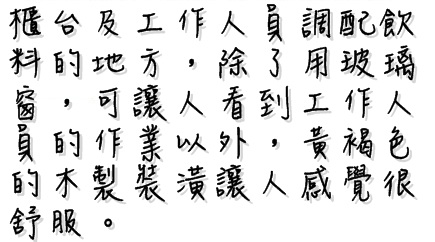 櫃台及工作人員調配飲
料的地方，除了用玻璃
窗，可讓人看到工作人
員的作業以外，黃褐色
的木製裝潢讓人感覺很
舒服。